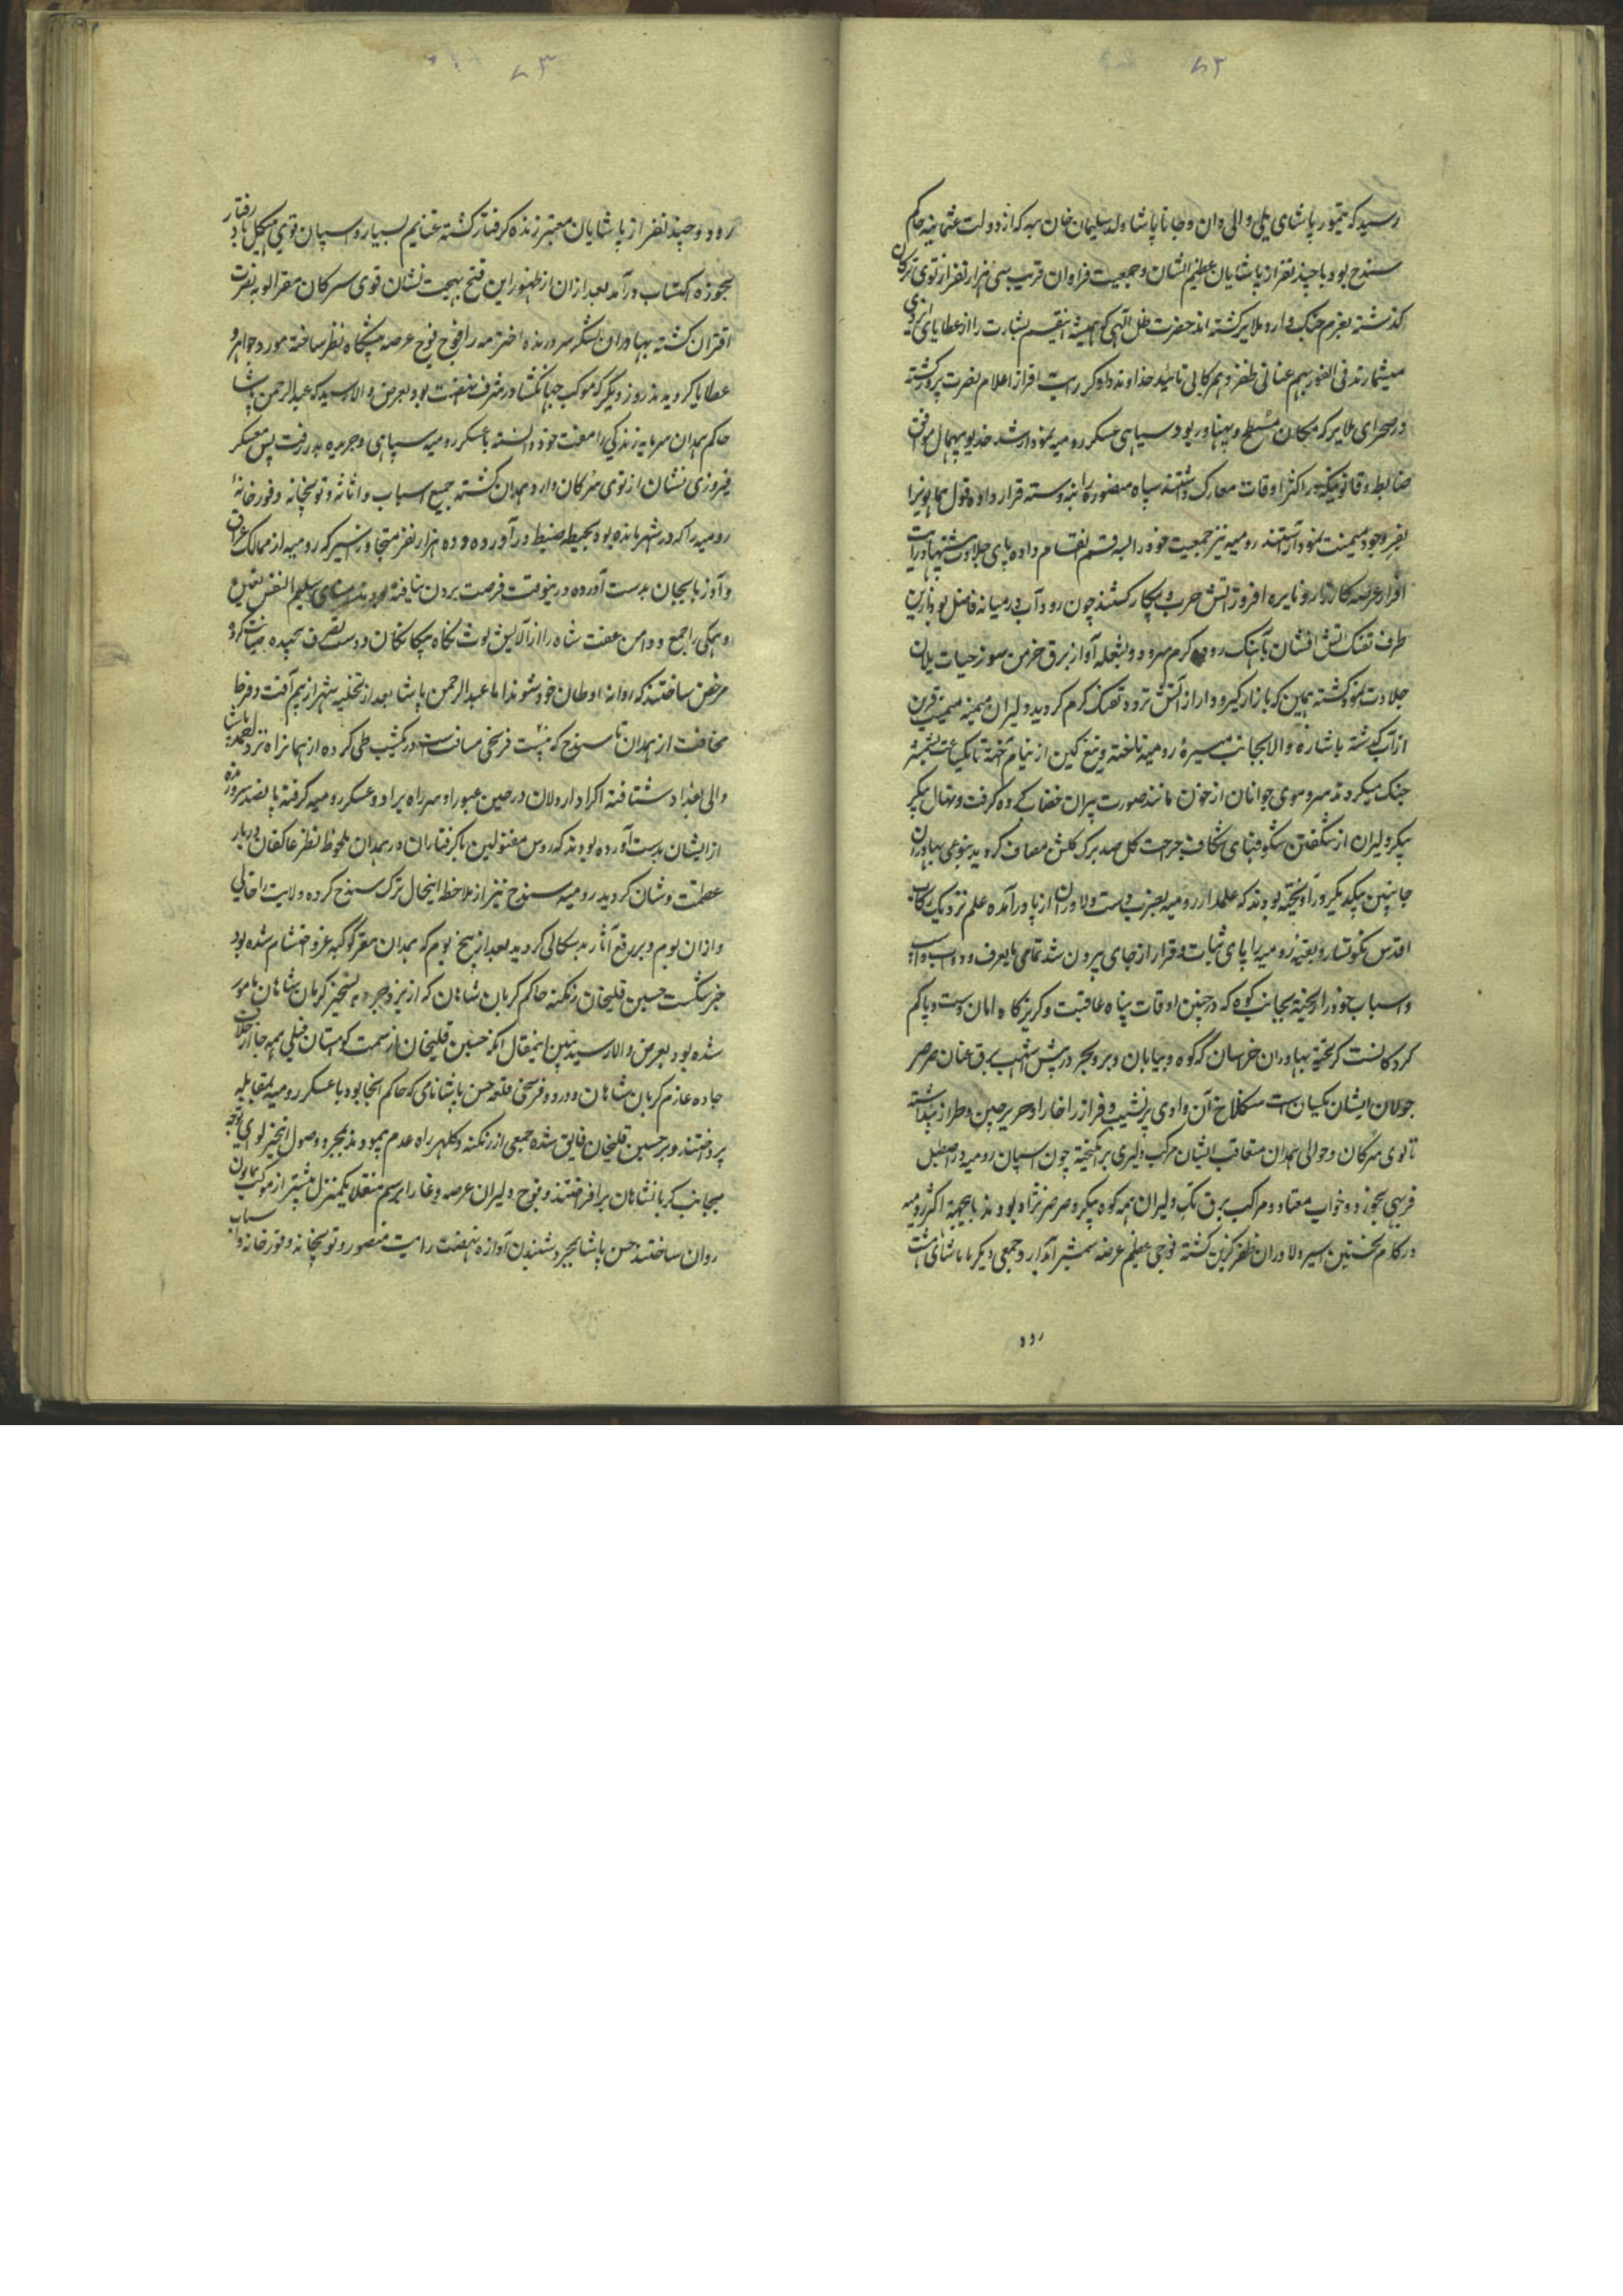 ۸۲
رسید که تیمور پاشای ملی والی وان و جانا پاشا ولد سلیمان خان ببه که از دولت عثمانیه حاکم
سنندج بود با چند نفر از پاشایان عظیم الشان و جمعیت فراوان قریب سی هزار نفر از توی سرکان
گذشته بعزم جنک وارد ملایر کشته اند حضرت ظل الهی که همیشه اینقسم بشارت را از عطایای ایزدی
میشمارند فی الفور بهم عنانی ظفر و همرکابی تائید خداوند داور رایت افراز اعلام نصرت پرور کشته
در صحرای ملایر که مکان مسطح و پهناور بود سیاهی عسکر رومیه نمودار شد خدیو بیهمال موافق
ضابطه و قانونیکه در اکثر اوقات معارک داشتند سپاه منصوره را بنه دسته قرار داده قول همایونرا
بفر وجود میمنت نمود آراستند رومیه نیز جمعیت خود را بسه قسم انقسام داده پای جلادت
افراز عرصه کارزار و نایره افروز آتش حرب و پیکار کشتند چون رود آب در میانه فاصل بود از این
طرف تفنک آتش افشان بآهنک رود کرم سرود و بشعله آواز برق خرمن سوز حیات یلان
جلادت نمود کشته همین که بازار کیرودار از آتش تردد تفنک کرم کردید دلیران میمنه میمنت قرین
از آب گذشته باشاره والا بجانب میسرهٔ رومیه تاخته و تیغ کین از نیام آخته تا یکساعت
جنک میکردند سر و موی جوانان از خون مانند صورت پیران خضاب کرده رنک گرفت و نهال پیکر
پیکر دلیران از شکفتن شکوفهای شکاف جراحت کل صد برک کلشن مصاف کردید بنوعی بهادران
جانبین بیکدیگر در آویخته بودند که علمدار رومیه بضرب دست دلاوران از پا درآمده علم نزدیک رکاب
اقدس نکونسار و بقیه رومیه را پای ثبات و قرار از جای بیرون شد تمامی
و اسباب خود را ریخته بجانب کوه که در چنین اوقات پناه عافیت و گریزگاه امان
گریخته بهادران خراسان که کوه و بیابان و بر و بحر در پیش اشهب برق عنان صرصر
جولان ایشان یکسان است سنکلاخ آن وادی پر نشیب و فراز را خارا و حریر چین و طراز پنداشته
تا توی سرکان و حوالی همدان متعاقب ایشان مرکب دلیری برانگیخته چون اسپان رومیه در اصطبل
فربهی بخور و خواب معتاد و مراکب برق تک دلیران همه کوه پیکر و صرصر نژاد بودند اکثر رومیه
در کام نخستین اسیر دلاوران ظفر قرین کشته فوجی عظیم عرضه شمشیر آبدار و جمعی دیگر
رود
۸۳
رود و چند نفر از پاشایان معتبر زنده گرفتار گشته غنایم بسیار و اسپان قوی هیکل باد رفتار
بحوزه اکتساب درآمد بعد از آن از ظهور این فتح بهجت نشان توی سرکان مقر الویه نصرت
اقتران گشته بهادران لشکر سر و زنده اخترمه را فوج فوج عرصه پیشگاه نظر ساخته مورد جوایز و
عطایا کردیدند روز دیگر که موکب جهانکشا در شرف نهضت بود بعرض والا رسید که عبدالرحمن پاشا
حاکم همدان سرمایه زندگی را مغتنم خود دانسته با عسکر رومیه سپاهی و جریده بدر رفت پس معسکر
فیروزی نشان از توی سرکان وارد همدان کشته جمیع اسباب و اثاثه و توپخانه و قورخانه
رومیه را که در شهر مانده بود بحیطه ضبط در آورده و ده هزار نفر متجاوز اسیر که رومیه از ممالک عراق
و آذربایجان بدست آورده در ینوقت فرصت بردن نیافته بودند سلیم النفس تعیین
و همکی را جمع و دامن عفت شاه را از آلایش لوث نگاه بیگانگان و دست تصرف پیچیده صیانت کرده
مرخص ساختند که روانه اوطان خود شوند اما عبدالرحمن پاشا بعد از تخلیه شهر از بیم آفت و فرط
مخافت از همدان تا سنندج که بیست فرسخی مسافت است در یکشب طی کرده از همانراه نزد احمد پاشا
والی بغداد شتافته اکراد اردلان در حین عبور او سر راه بر او و عسکر رومیه گرفته پانصد سر و زنده
از ایشان بدست آورده بودند که رؤس مقتولین با گرفتاران در همدان ملحوظ نظر عاکفان دربار
عظمت و شان کردید رومیه سنندج نیز از ملاحظه اینحال ترک سنندج کرده ولایت را خالی
و از آن بوم و بر رفع آثار بدسکالی کردید بعد از پنج یوم که همدان مقر کوکبه عز و احتشام شده بود
خبر شکست حسین قلیخان زنکنه حاکم کرمان شاهان که از بروجرد به تسخیر کرمان شاهان مامور
شده بود بعرض والا رسید تبیین اینمقال آنکه حسین قلیخان از سمت کوهستان فیلی همه جا از خلاف
جاده عازم کرمان شاهان و در دو فرسخی قلعه حسن پاشا نامی که حاکم آنجا بود با عسکر رومیه بمقابله
پرداختند و بر حسین قلیخان فایق شده جمعی از زنکنه و کلهر راه عدم پیمودند بمجرد وصول اینخبر لوای توجه
بجانب کرمانشاهان برافراختند و فوج دلیران عرصه وغا را برسم منقلا یکمنزل پیشتر از موکب همایون
روان ساختند حسن پاشا بمجرد شنیدن آوازه نهضت رایت منصور و توپخانه و قورخانه و اسباب